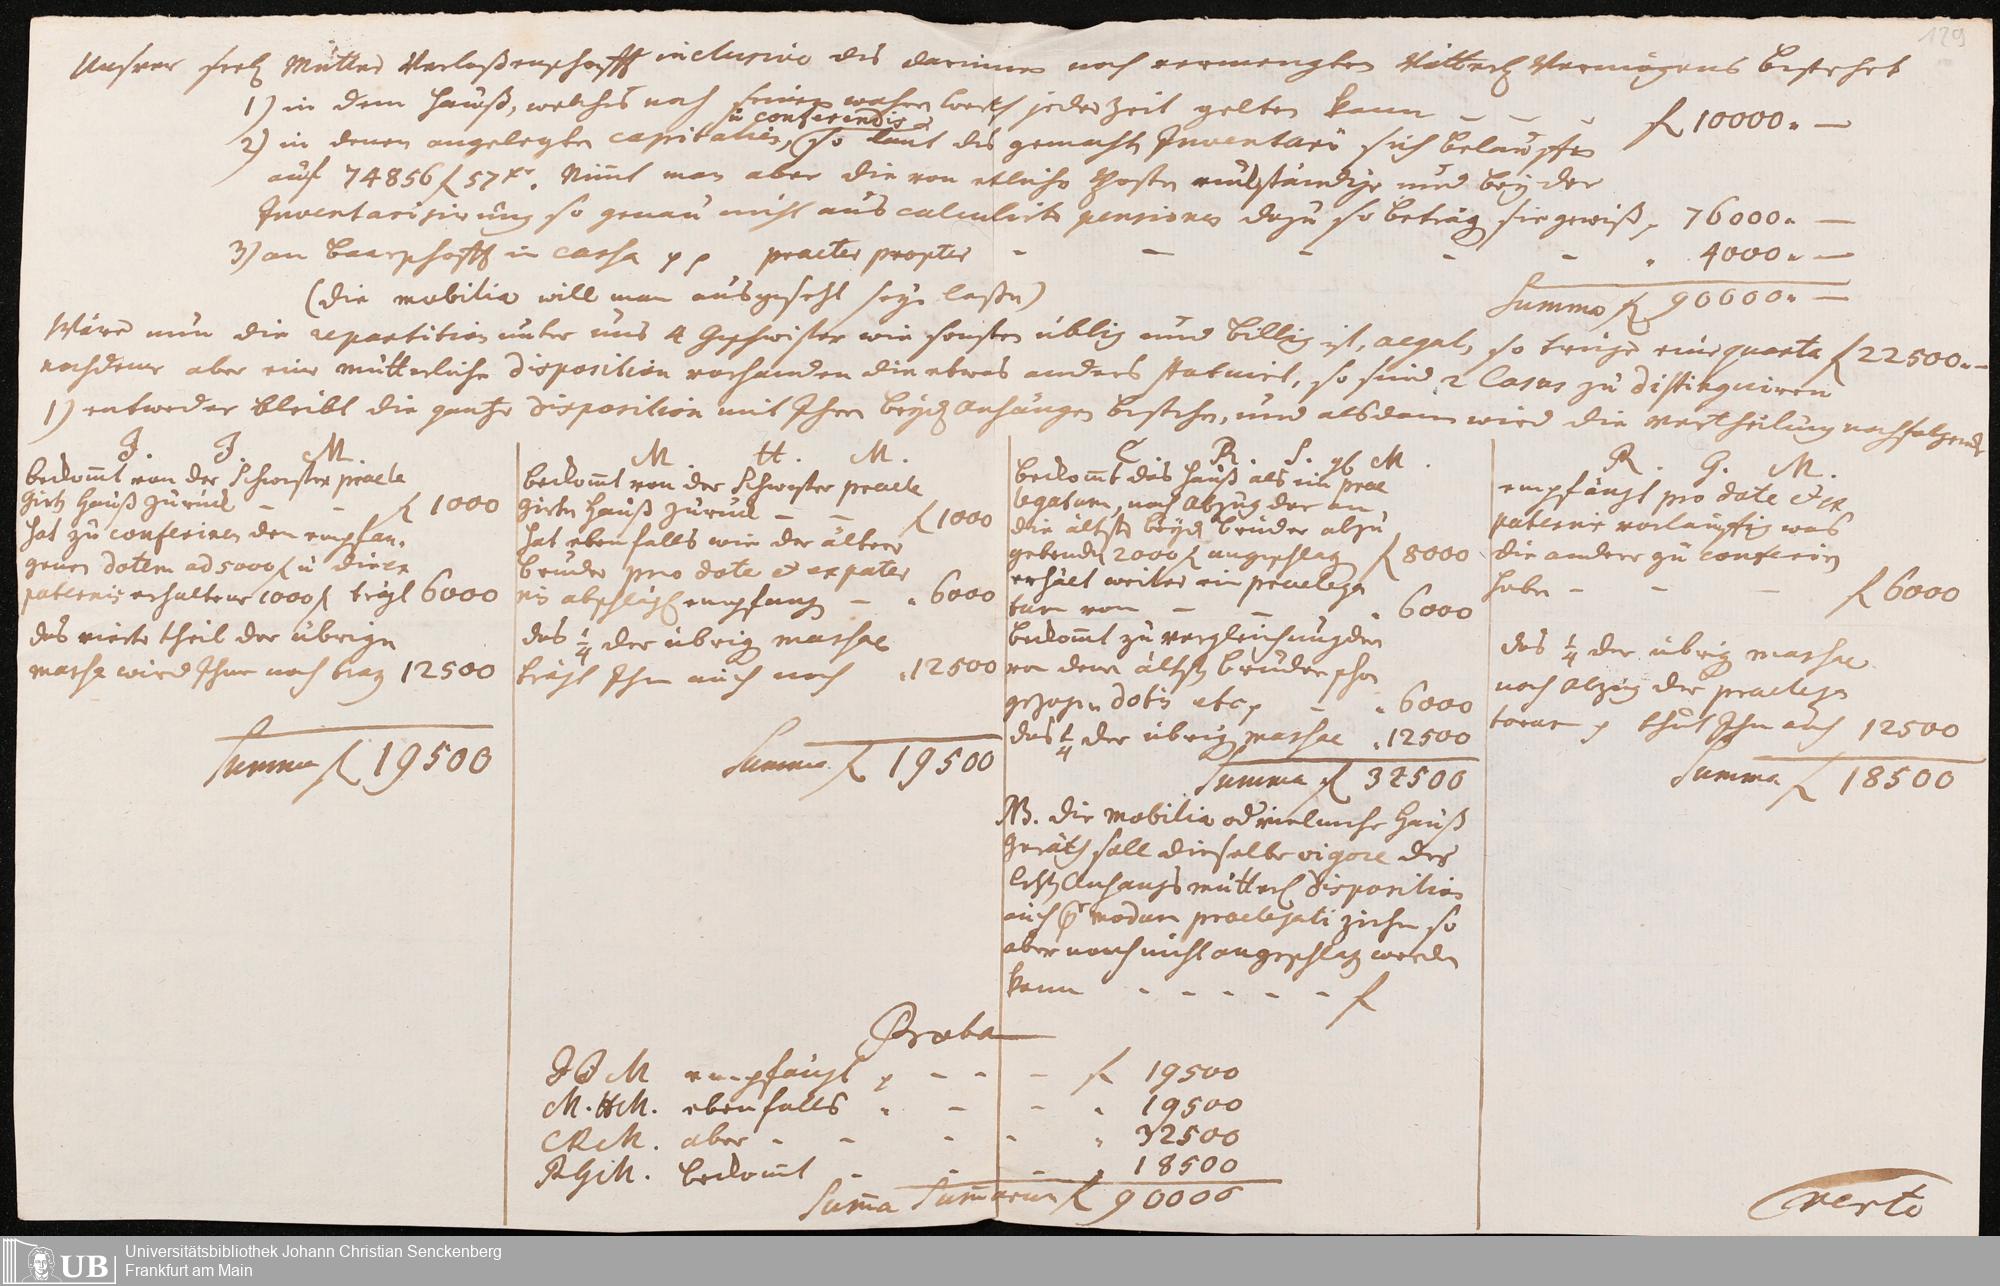 129
Unsrer seel. Mutter Verlaßenschafft inclusive des darinnen noch vermengten Vätterl. Vermögens bestehet
1) in dem Hauß, welches nach seinem wahren werth jederzeit gelten kann — — — f 10000 „ —
u conferendis
2) in denen angelegten capitalien, (so laut des gemachten Inventarii sich belauffen
auf 74856 f 57 xr. Nimt man aber die von etliche Posten rückständige und bey der
Inventarisirung so genau nicht aus calculirte pensiones dazu so beträgt sie gewiß „ 76000 „ —
3) an baarschafft in cassa pp praeter propter - - - - - „ 4000 „ —
(die mobilia will man ausgesetzt seyn laßen) Summa f 90000 „ —
Wäre nun die repartition unter uns 4 Geschwister wie sonsten üblig und billig ist, aegal, so trüge eine quarta f 22500 „ —
nachdeme aber eine mütterliche Disposition vorhanden die etwas anders statuirt, so sind 2 Casus zu distinguiren
1) entweder bleibt die gantze Disposition mit Ihren beyd Anhängen bestehen, und alsdann wird die Vertheilung nachfolgende
J. J. M.
bekommt von der Schwester praele
girte Hauß zurück - - f 1000
hat zu conferiren den empfan,
genen dotem ad 5000 f u die ex
paternis erhaltene 1000 f trägt 6000
das vierte theil der übrigen
massa wird Ihme noch trag 12500
Summa f 19500
M. H. M.
bekommt von der Schwester praele
girten Hauß zurück — — f 1000
hat ebenfalls wie der ältere
bruder pro dote et ex pater
nis abschlägl. empfang — „ 6000
das 1/4 der übrig massae
trägt Ihm auch noch „ 12500
Summa f 19500
C. R. S. gb M.
bekommt das Hauß als ein prae
legatum, nach abzug der an
die ältste beyd brüder abzu
gebende 2000 f angeschlag f 8000
erhält weiter ein praelega
tum von — — „ 6000
bekommt zu vergleichung der
von dem ältst bruder schon
gezogen dotis etc. - „ 6000
das 1/4 der übrig massae „ 12500
Summa f 32500
NB. die mobilia od vielmehr Hauß
Geräth soll dieselbe vigore des
letzt Anhangs mütterl Disposition
auch p modum praelegati ziehen so
aber noch nicht angeschlag werden
kann - - - - - f
R. G. M.
empfängt pro dote et ex
paternis vorläuffig was
die andere zu conferiren
haben - - - f 6000
das 1/4 der übrig massae
nach abzug der praelega
torum p thut Ihm auch 12500
Summa f 18500
Proba
JJM empfängt p - - - f 19500
M. HM. ebenfalls „ - - „ 19500
CRM. aber - - - - „ 32500
RGM. bekommt - - - „ 18500
Summa Summarum f 90000
verte
UB
Universitätsbibliothek Johann Christian Senckenberg
Frankfurt am Main